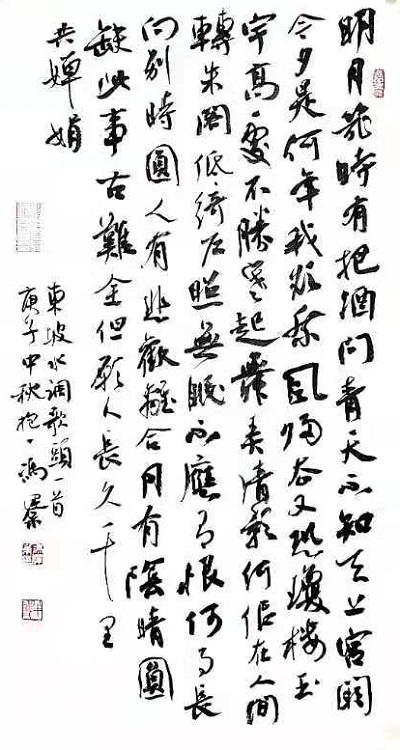 明月幾時有把酒問青天不知天上宮闕
今夕是何年我欲乘風歸去又恐瓊樓玉
宇高處不勝寒起舞弄清影何似在人間
轉朱閣低綺戶照無眠不應有恨何事長
向別時圓人有悲歡離合月有陰晴圓
缺此事古難全但願人長久千里
共嬋娟
東坡水調歌頭一首
庚子中秋抱一馮